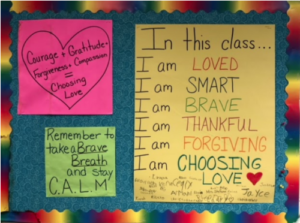 Courage + Gratitude+
Forgiveness + Compassion
=
Choosing
Love
Remember to
take a Brave
Breath
and stay
C.A.L.M
In this class...
I am LOVED
I am SMART
I am BRAVE
I am THANKFUL
I am FORGIVING
I am CHOOSING
LOVE